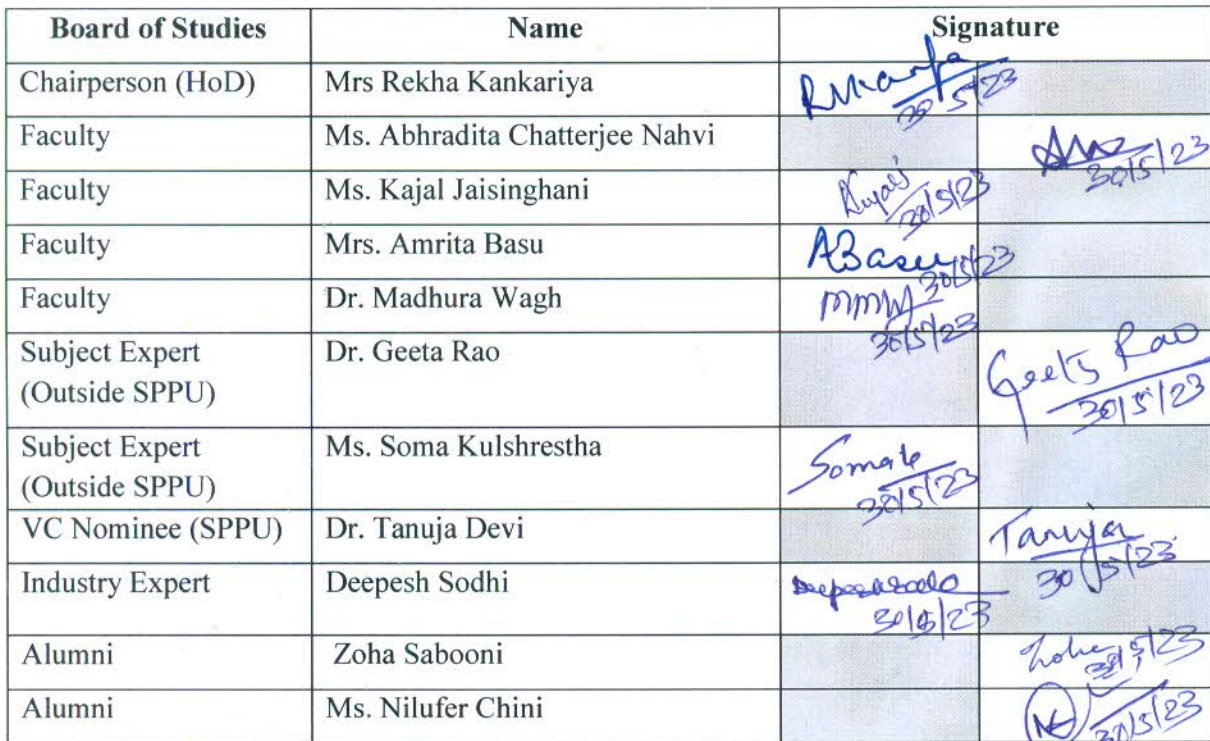 Board of Studies Name Signature
Chairperson (HoD) Mrs Rekha Kankariya
30/5/23
Faculty Ms. Abhradita Chatterjee Nahvi
30/5/23
Faculty Ms. Kajal Jaisinghani
30/5/23
Faculty Mrs. Amrita Basu ABasu
30/5/23
Faculty Dr. Madhura Wagh
30/5/23
Subject Expert Dr. Geeta Rao Geeta Rao
(Outside SPPU) 30/5/23
Subject Expert Ms. Soma Kulshrestha
(Outside SPPU) 30/5/23
VC Nominee (SPPU) Dr. Tanuja Devi Tanuja
30/5/23
Industry Expert Deepesh Sodhi
30/5/23
Alumni Zoha Sabooni
30/5/23
Alumni Ms. Nilufer Chini
30/5/23